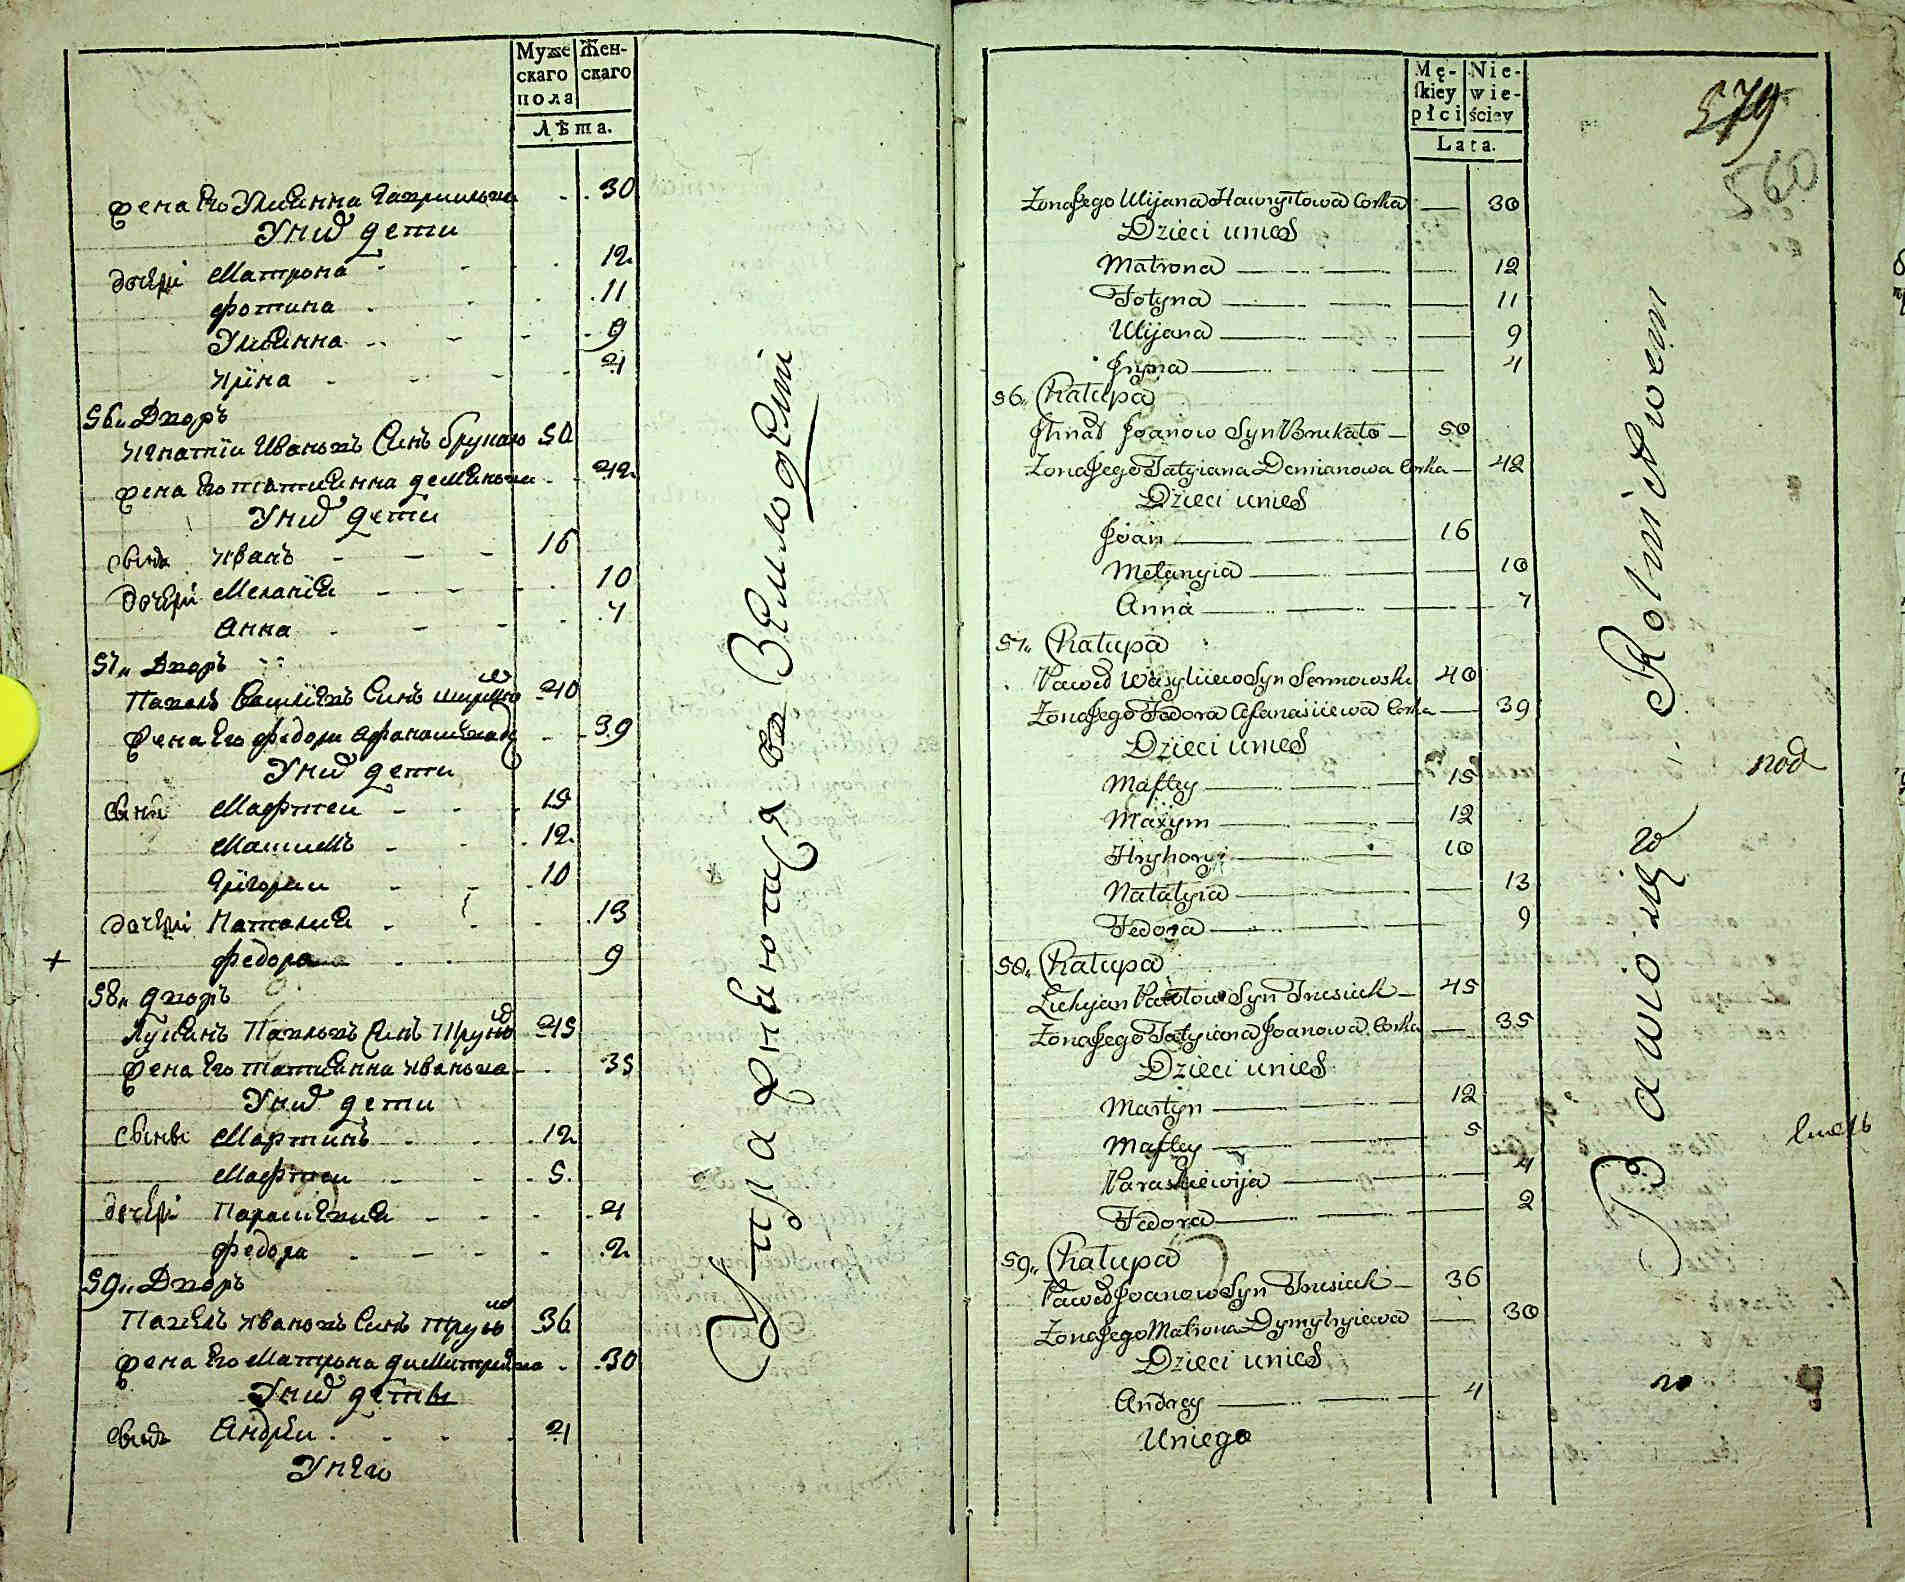 Муже
скаго
пола
Жен-
скаго
Лѣта.
жена Его Улиянна Гаврилова 30
У них дети
дочери Матрона 12
Фотина 11
Улиянна 9
Ирина 4
56 Дворъ
Игнатий Ивановъ Синъ 50
жена Его татиянна демянова 42
У них дети
синъ Иванъ 16
дочери Мелания 10
Анна 7
57 Дворъ
Павелъ Василиевъ Синъ 40
жена Его федора 39
У них дети
сини Мафтеи 15
Машимъ 12
Григории 10
дочери Наталия 13
+ федора 9
58 дворъ
Лукянъ Павловъ Синъ 45
жена Его татиянна иванова 35
У них дети
сини Мартинъ 12
Мафтеи 5
дочери Параскевия 4
федора 2
59 Дворъ
Павелъ ивановъ Синъ 36
жена Его Матрона димитриева 30
У них дети
синъ Андреи 4
У него
Упражняются в Земледелии
Mę-
skiey
płci
Nie-
wie-
ściey
Lata.
579
560
Zona Jego Ulijana Hawryłowa Corka 30
Dzieci unich
Matrona 12
Fotyna 11
Ulijana 9
Iryna 4
56 Chałupa
Ihnat Joanow Syn 50
Zona Jego Tatyiana Demianowa Corka 42
Dzieci unich
Joan 16
Melanyia 10
Anna 7
57 Chałupa
Paweł Wasyliiew Syn 40
Zona Jego Fedora Afanasiiewa Corka 39
Dzieci unich
Maftey 15
Maxym 12
Hryhory 10
Natalyia 13
Fedora 9
58 Chałupa
Łukjan Pawłow Syn Trusiuk 45
Zona Jego Tatyiana Joanowa Corka 35
Dzieci unich
Martyn 12
Maftey 5
Paraskiewija 4
Fedora 2
59 Chałupa
Paweł Joanow Syn Trusiuk 36
Zona Jego Matrona Dymytryiewa 30
Dzieci unich
Andrey 4
Uniego
Bawio się Rolnictwem